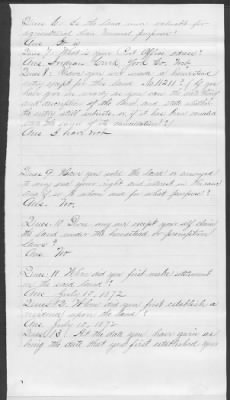 Ques 6. Is the land more valuable for
agricultural than mineral purposes?
Ans. It is
Ques 7. What is your Post Office address?
Ans. Indian Creek, York Co. Neb.
Ques 8. Have you ever made a homestead
entry except for this land No. 11211? If
you have done so
and description of the land, and state whether
the entry still subsists, or if it has been
Ans. I have not
Ques 9. Have you sold the land or conveyed
to any one your right and interest in the same
and if so to whom and for what purpose?
Ans. No.
Ques. 10 Does any one except yourself claim
the land under the homestead or preemption
laws?
Ans. No
Ques 11. When did you first make settlement
on the said land?
Ans. July 10, 1872
Ques 12. When did you first establish a
residence upon the land?
Ans. July 10, 1872
Ques. 13. At the date you have given as
being the date that you first established your